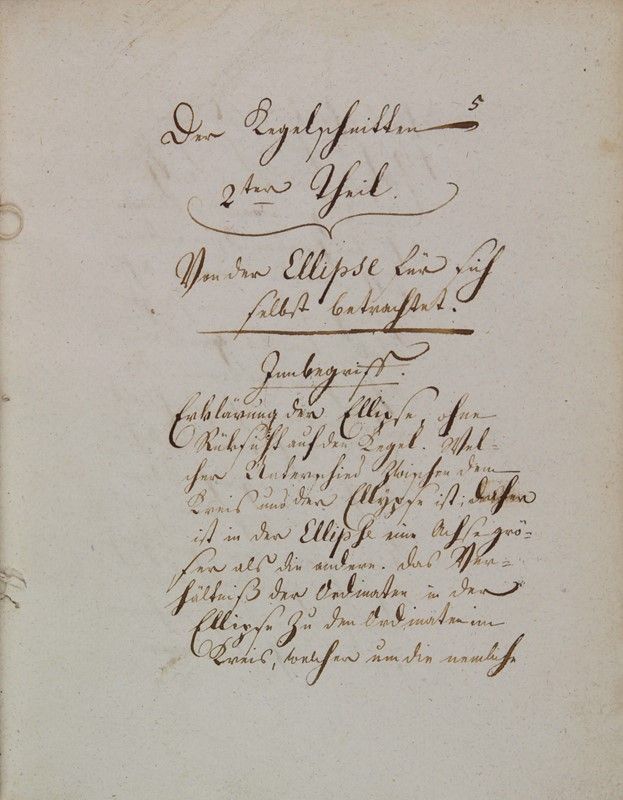 5
Der Kegelschnitten
2ter Theil.
Von der Ellipse für sich
selbst betrachtet.
Innbegriff.
Erklärung der Ellipse, ohne
Rüksicht auf den Kegel. Wel=
cher Unterschied zwischen dem
Kreis und der Ellypse ist; daher
ist in der Elliphe eine Achse grö=
ser als die andere. das Ver=
hältniß der Ordinaten in der
Ellipse zu den Ordinaten im
Kreis, welcher um die nemliche